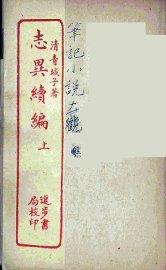 筆記小說大觀
清青城子著
志異續編 上
進步書局校印